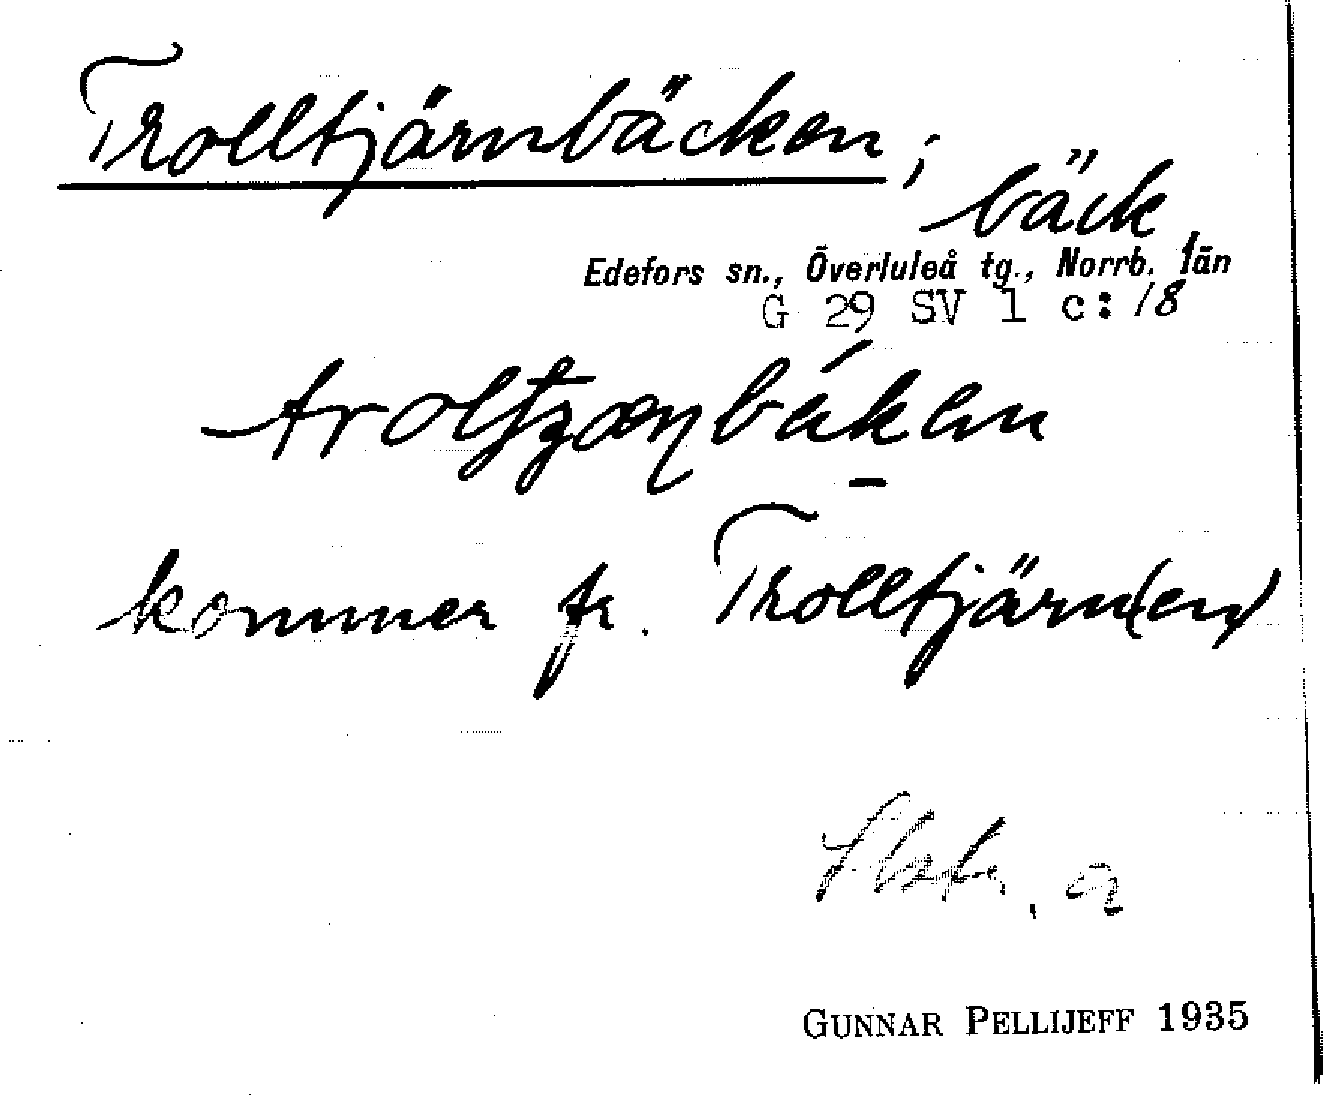 Trolltjärnbäcken;
bäck
Edefors sn., Överluleå tg., Norrb. län
G 29 SV 1 c:18
kommer fr. Trolltjärn(en)
GUNNAR PELLIJEFF 1935